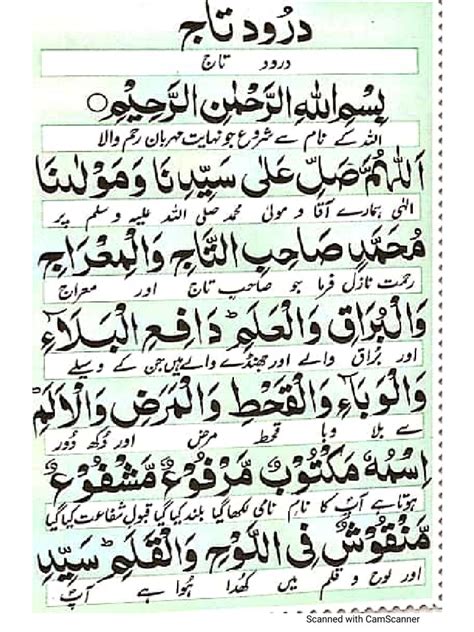 درود تاج
درود تاج
بِسْمِ اللهِ الرَّحْمٰنِ الرَّحِيْمِ○
اللہ کے نام سے شروع جو نہایت مہربان رحم والا
اَللّٰهُمَّ صَلِّ عَلٰى سَيِّدِنَا وَمَوْلٰىنَا
الٰہی ہمارے آقا و مولیٰ محمد صلی اللہ علیہ و سلم پر
مُحَمَّدٍ صَاحِبِ التَّاجِ وَالْمِعْرَاجِ
رحمت نازل فرما جو صاحبِ تاج اور معراج
وَالْبُرَاقِ وَالْعَلَمِ ؕ دَافِعِ الْبَلَآءِ
اور بُراق والے اور جھنڈے والے ہیں جن کے وسیلے
وَالْوَبَآءِ وَالْقَحْطِ وَالْمَرَضِ وَالْاَلَمِ ؕ
سے بلا وبا قحط مرض اور دُکھ دُور
اِسْمُهٗ مَكْتُوْبٌ مَّرْفُوْعٌ مَّشْفُوْعٌ
ہوتا ہے آپؐ کا نام نامی لکھا گیا بلند کیا گیا قبول شفاعت کیا گیا
مَّنْقُوْشٌ فِى اللَّوْحِ وَالْقَلَمِ ؕ سَيِّدِ
اور لوح و قلم میں کھُدا ہُوا ہے آپؐ
Scanned with CamScanner